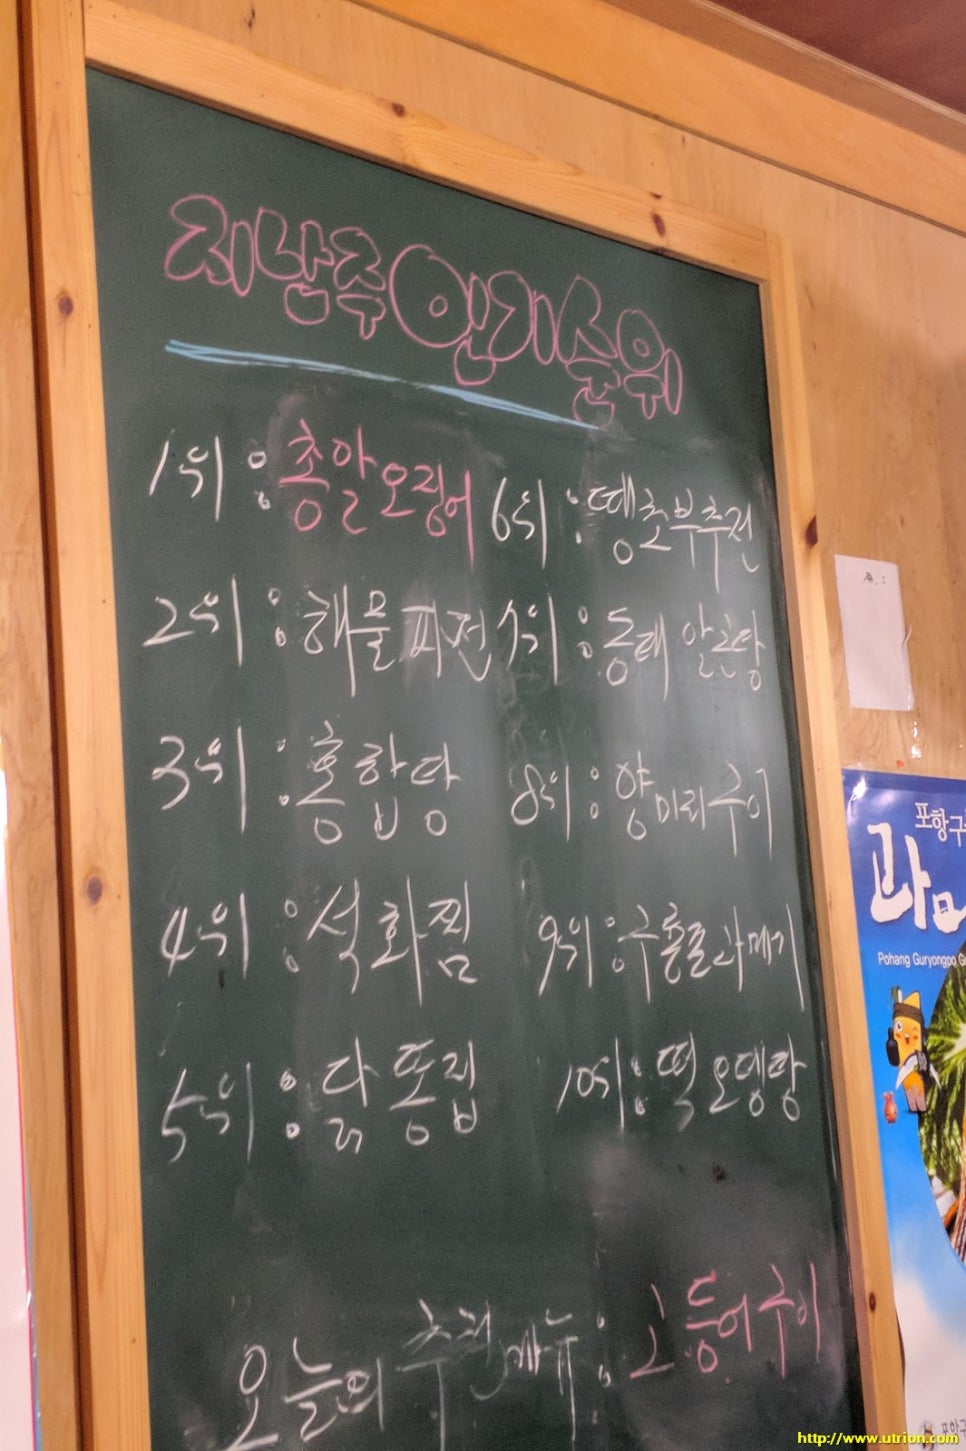 지난주 인기순위
1위 : 총알오징어
2위 : 해물파전
3위 : 홍합탕
4위 : 석화찜
5위 : 닭똥집
6위 : 땡초부추전
7위 : 동태 알곤탕
8위 : 양미리구이
9위 : 구룡포과메기
10위 : 떡오뎅탕
오늘의 추천메뉴 : 고등어구이
포항구
과메
Pohang Guryongpo G
http://www.utrion.com